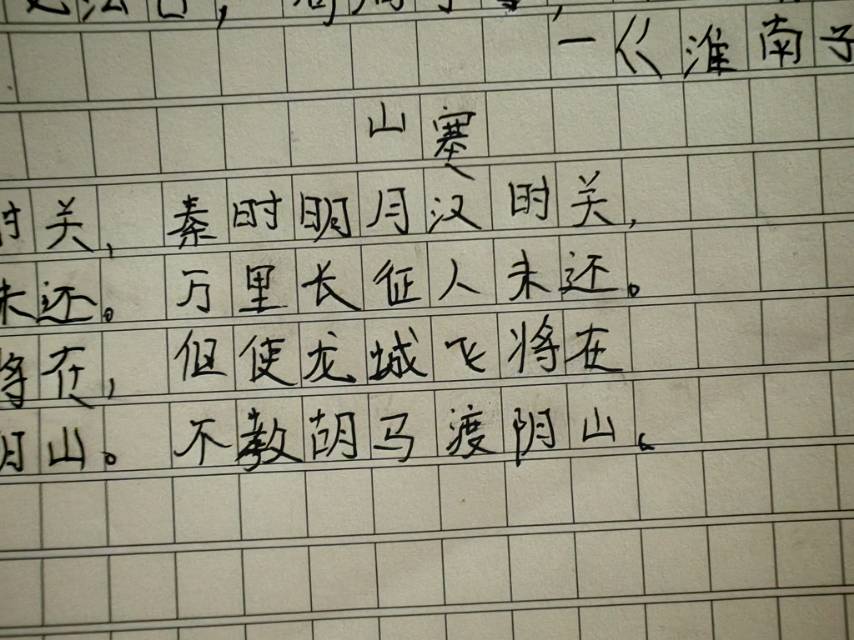 一《淮南子
山塞
时关，秦时明月汉时关，
未还。万里长征人未还。
将在，但使龙城飞将在
月山。不教胡马渡阴山。